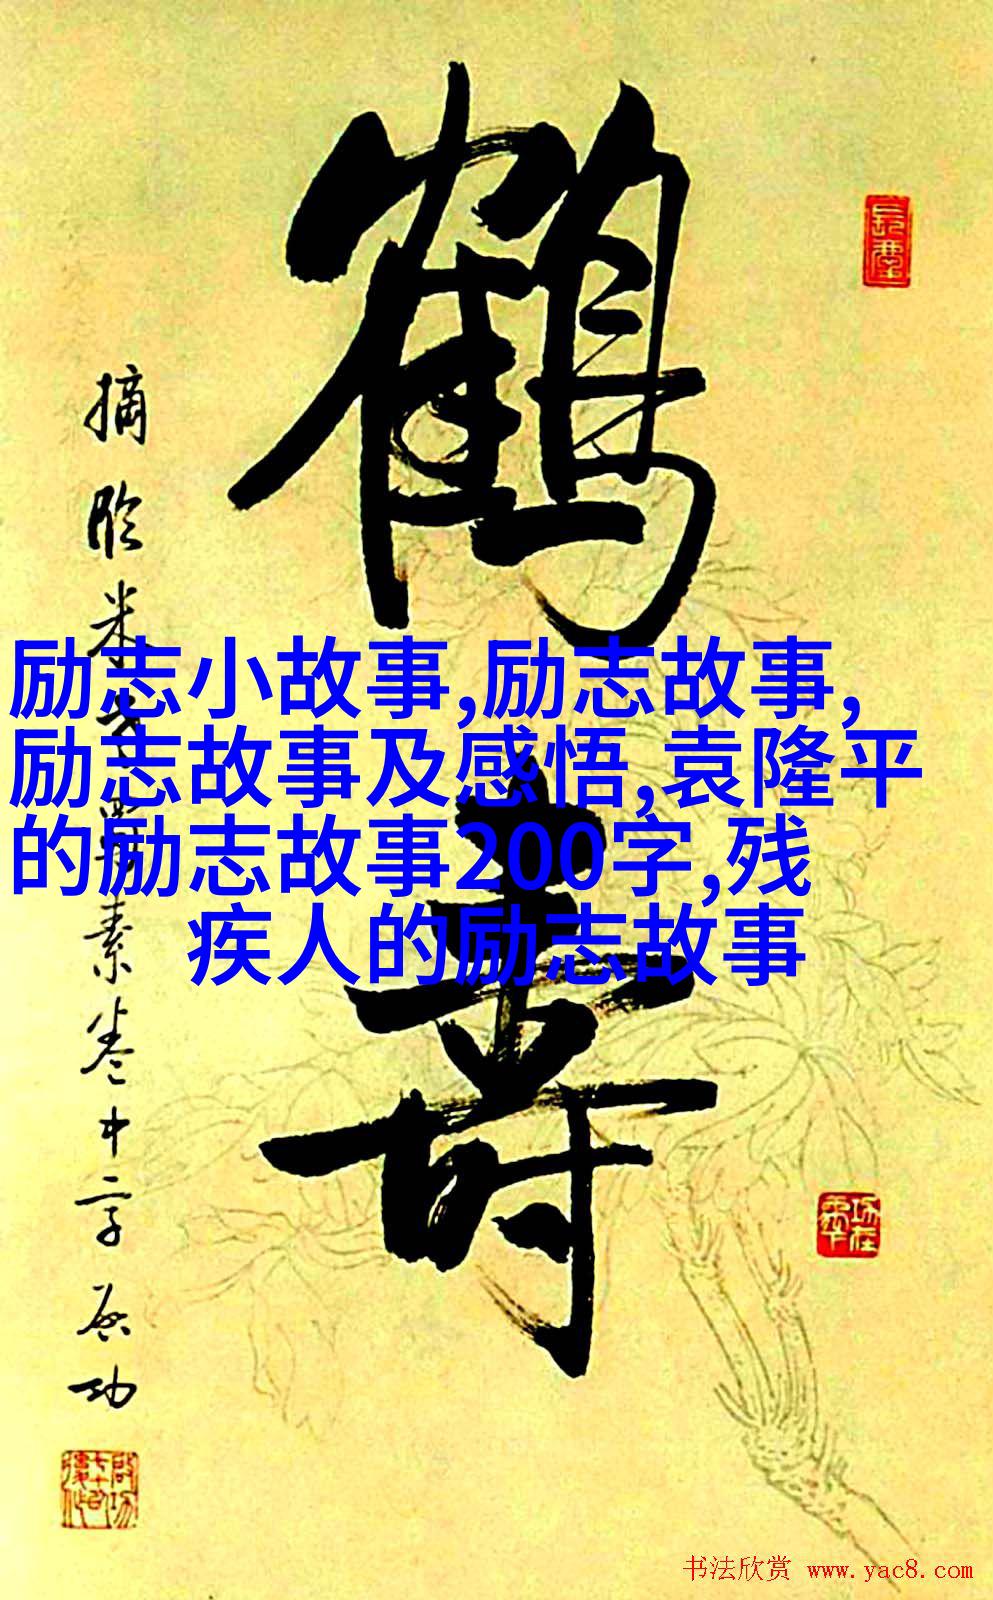 鹤寿
摘临米书蜀素卷中字启功
励志小故事,励志故事,
励志故事及感悟,袁隆平
的励志故事200字,残
疾人的励志故事
书法欣赏 www.yac8.com